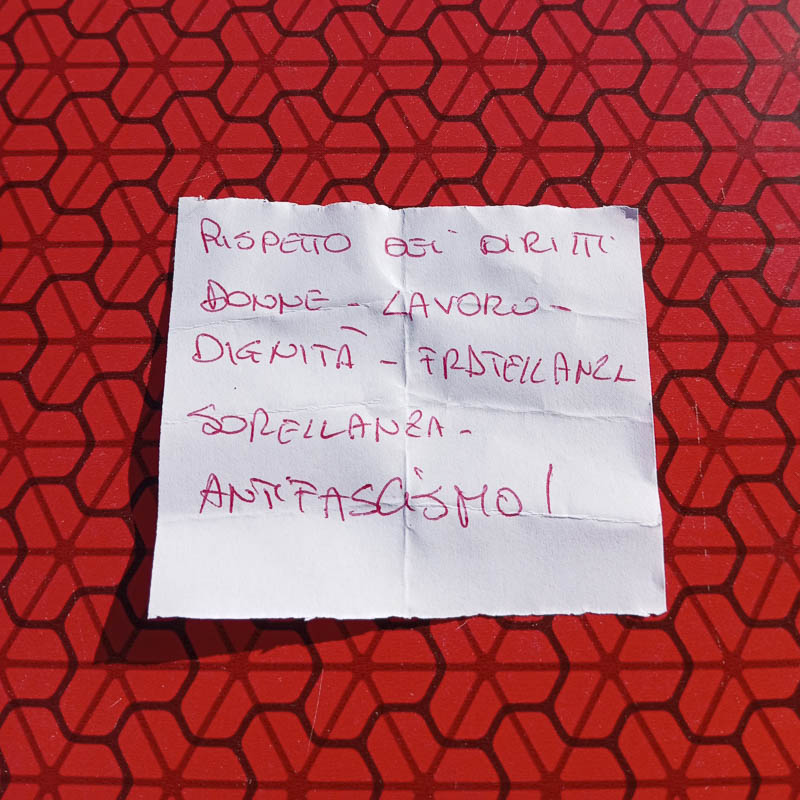 RISPETTO DEI DIRITTI
DONNE - LAVORO -
DIGNITÀ - FRATELLANZA
SORELLANZA -
ANTIFASCISMO!